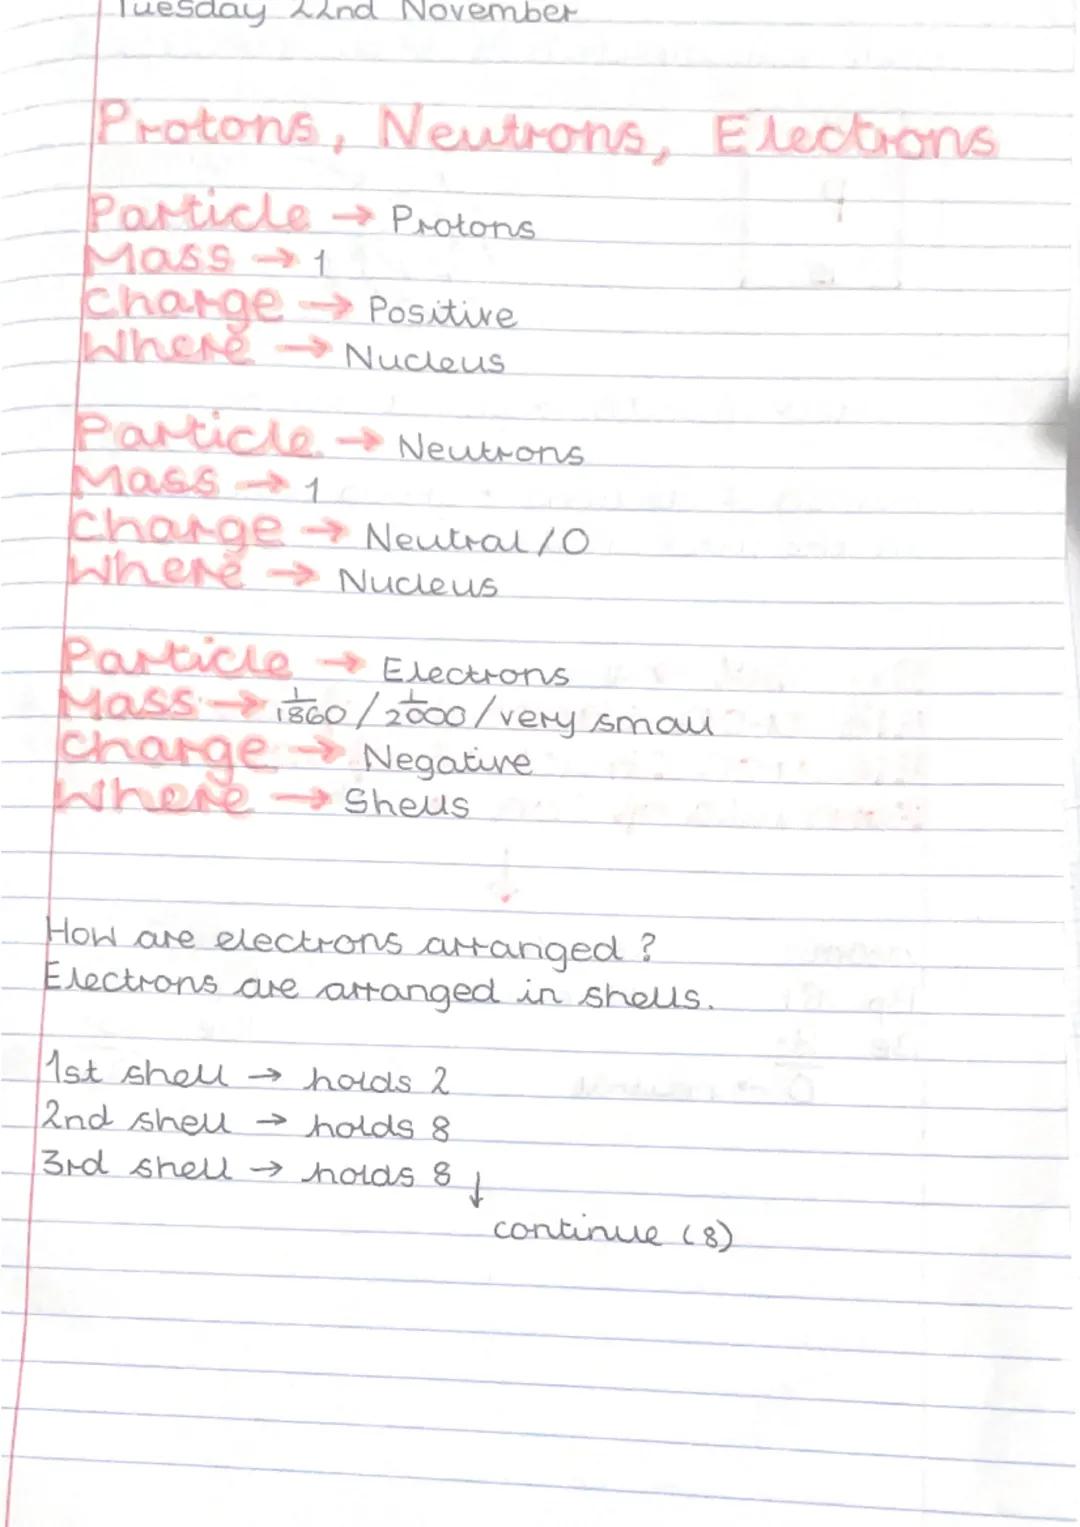 Tuesday 22nd November
Protons, Neutrons, Electrons
Particle → Protons
Mass → 1
Charge → Positive
Where → Nucleus
Particle → Neutrons
Mass → 1
Charge → Neutral/0
Where → Nucleus
Particle → Electrons
Mass → 1/1860 / 1/2000 / very small
Charge → Negative
Where → Shells
↓
How are electrons arranged?
Electrons are arranged in shells.
1st shell → holds 2
2nd shell → holds 8
3rd shell → holds 8 ↓
continue (8)